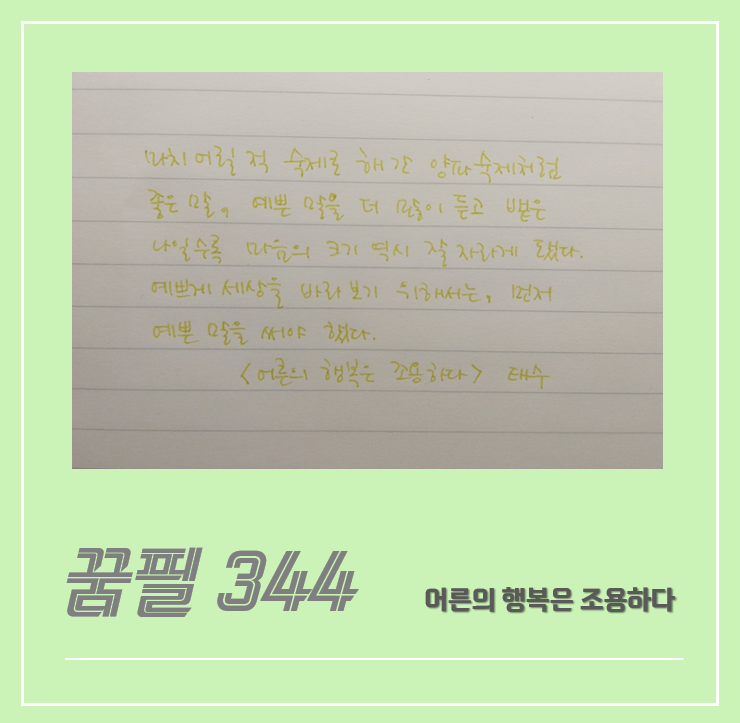 마치 어릴 적 숙제로 해 간 양파 숙제처럼
좋은 말, 예쁜 말을 더 많이 듣고 뱉은
나일수록 마음의 크기 역시 잘 자라게 했다.
예쁘게 세상을 바라보기 위해서는, 먼저
예쁜 말을 써야 했다.
<어른의 행복은 조용하다> 태수
꿈필 344
어른의 행복은 조용하다